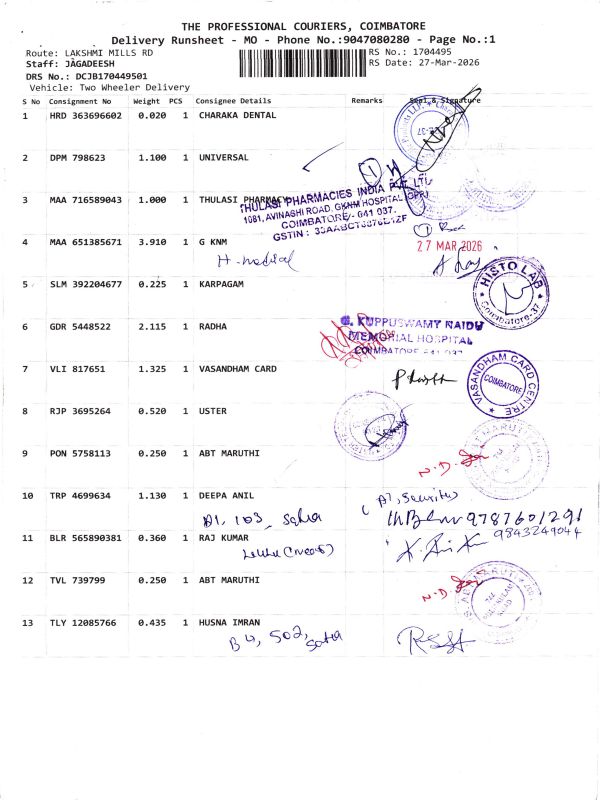 THE PROFESSIONAL COURIERS, COIMBATORE
Delivery Runsheet - MO - Phone No.:9047080280 - Page No.:1
Route: LAKSHMI MILLS RD
RS No.: 1704495
Staff: JAGADEESH
RS Date: 27-Mar-2026
DRS No.: DCJB170449501
Vehicle: Two Wheeler Delivery
S No Consignment No Weight PCS Consignee Details Remarks Seal & Signature
1 HRD 363696602 0.020 1 CHARAKA DENTAL
2 DPM 798623 1.100 1 UNIVERSAL
3 MAA 716589043 1.000 1 THULASI PHARMACY
THULASI PHARMACIES INDIA PVT. LTD
1081, AVINASHI ROAD, GKNM HOSPITAL (OPP)
COIMBATORE - 641 037.
4 MAA 651385671 3.910 1 G KNM
27 MAR 2026
5 SLM 392204677 0.225 1 KARPAGAM
HISTO LAB
Coimbatore-37
6 GDR 5448522 2.115 1 RADHA
G. KUPPUSWAMY NAIDU
MEMORIAL HOSPITAL
COIMBATORE 641 037
7 VLI 817651 1.325 1 VASANDHAM CARD
VASANDHAM CARD CENTRE
COIMBATORE
8 RJP 3695264 0.520 1 USTER
9 PON 5758113 0.250 1 ABT MARUTHI
N.D.
10 TRP 4699634 1.130 1 DEEPA ANIL
A1, 103,
9787601291
11 BLR 565890381 0.360 1 RAJ KUMAR
9843249044
12 TVL 739799 0.250 1 ABT MARUTHI
N.D.
13 TLY 12085766 0.435 1 HUSNA IMRAN
B4, 502,